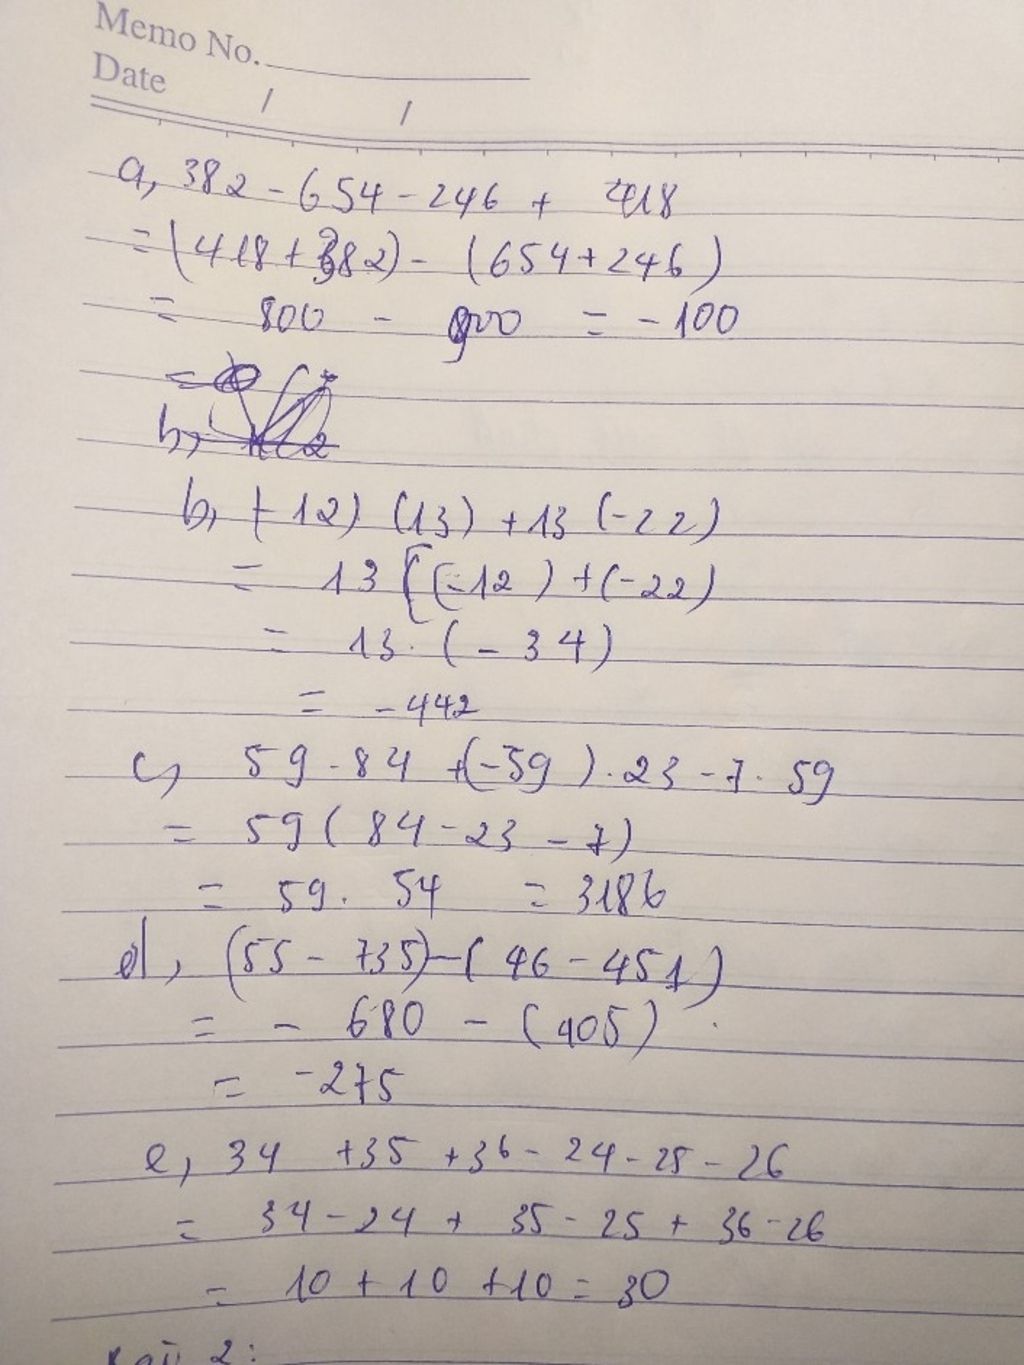 Memo No.
Date / /
a, 382 - 654 - 246 + 418
= (418 + 382) - (654 + 246)
= 800 - 900 = -100
b, (-12) (13) + 13 (-22)
= 13 [(-12) + (-22)
= 13. (-34)
= -442
c, 59 - 84 + (-59) . 23 - 7 . 59
= 59 ( 84 - 23 - 7)
= 59. 54 = 3186
d, (55 - 735) - ( 46 - 451)
= - 680 - (405)
= -275
e, 34 + 35 + 36 - 24 - 25 - 26
= 34 - 24 + 35 - 25 + 36 - 26
= 10 + 10 + 10 = 30
Bài 2: